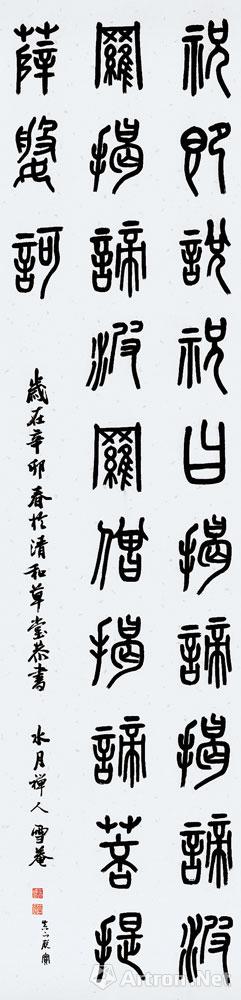 祝即說祝曰揭諦揭諦波
羅揭諦波羅僧揭諦菩提
薩婆訶
歲在辛卯春於清和草堂恭書
水月禅人雪菴
Artron.Net